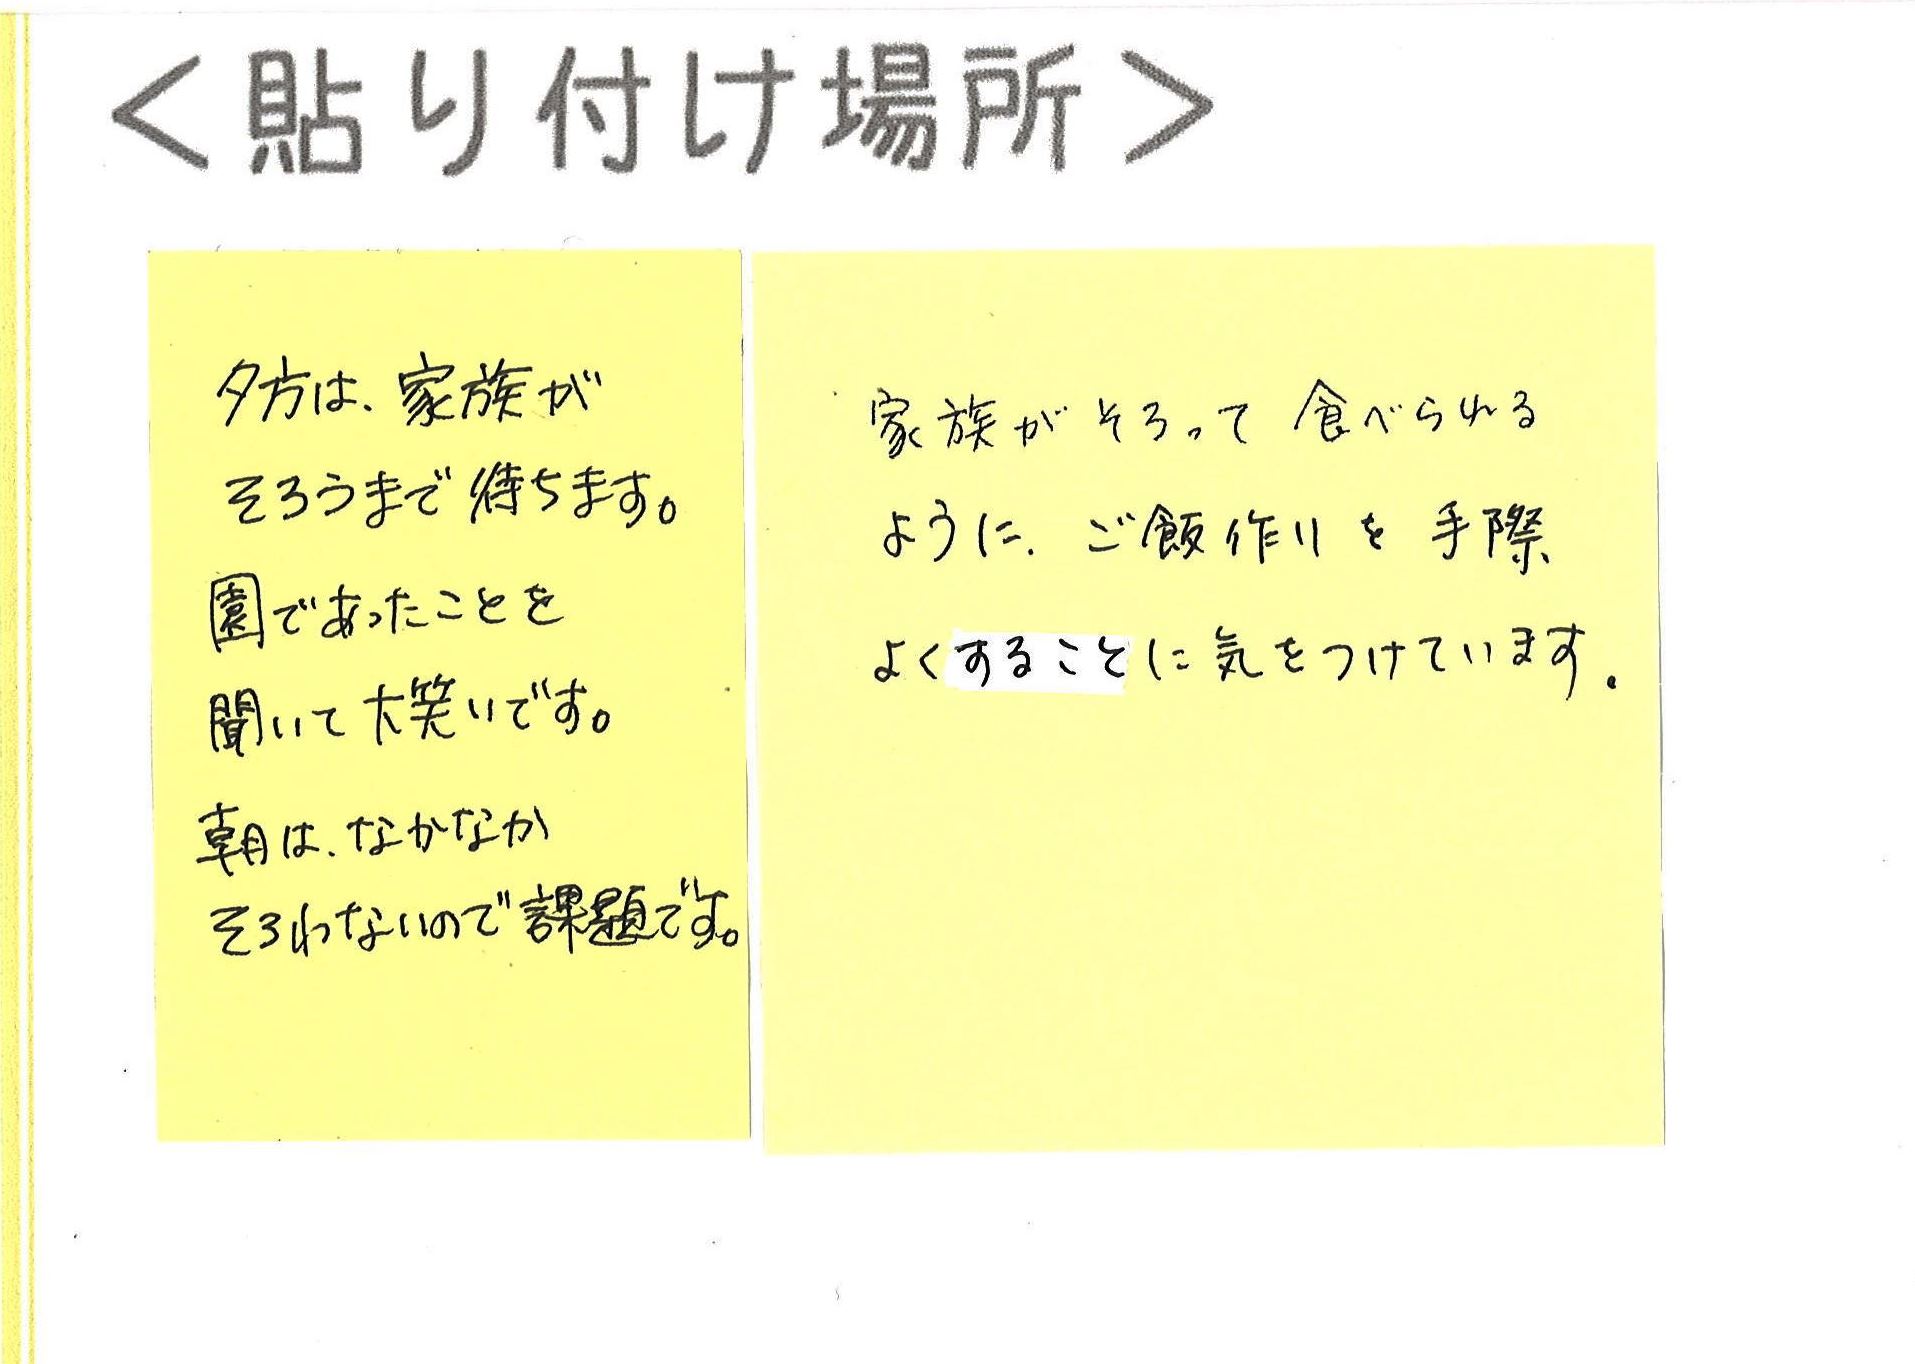 ＜貼り付け場所＞
夕方は、家族が
そろうまで待ちます。
園であったことを
聞いて大笑いです。
朝は、なかなか
そろわないので課題です。
家族がそろって食べられる
ように、ご飯作りを手際
よくすることに気をつけています。